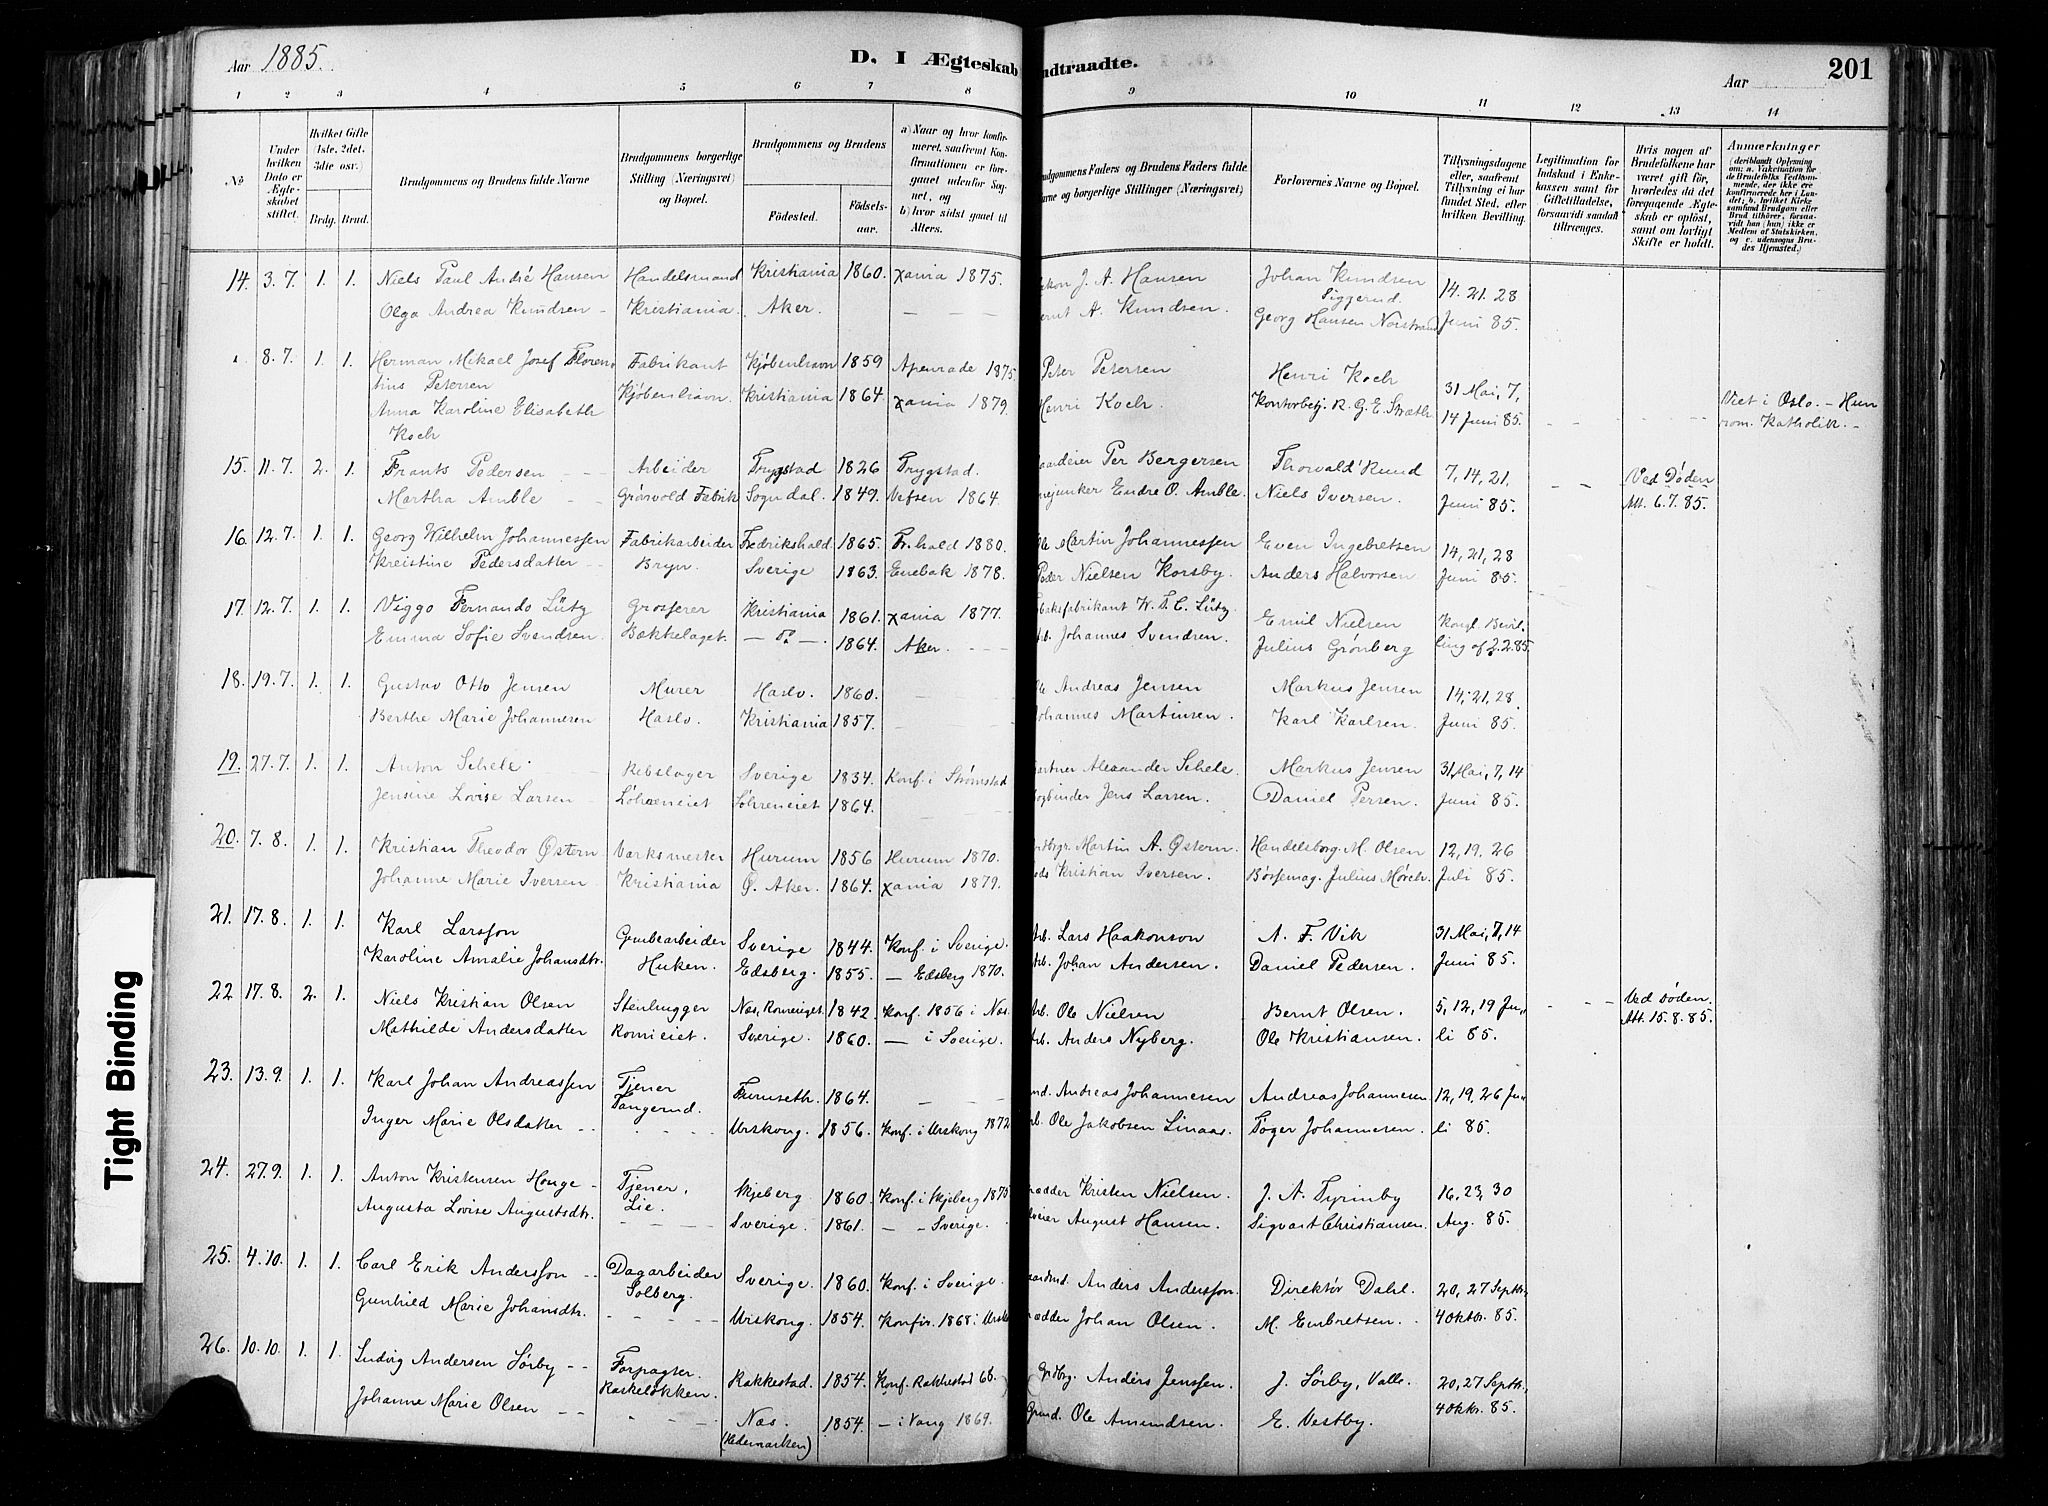 Aar 1885.
D. I Ægteskab
indtraadte.
Aar
201
1 2 3 4 5 6 7 8 9 10 11 12 13 14
No
Under hvilken Dato er Ægteskabet stiftet.
Hvilket Gifte (1ste, 2det, 3die osv.)
Brdg. Brud.
Brudgommens og Brudens fulde Navne
Brudgommens borgerlige Stilling (Næringsvei) og Bopæl.
Brudgommens og Brudens
Fødested.
Fødselsaar.
a) Naar og hvor konfirmeret, saafremt Konfirmationen er foregaaet udenfor Sognet, og
b) hvor sidst gaaet til Alters.
Brudgommens Faders og Brudens Faders fulde Navne og borgerlige Stillinger (Næringsvei)
Forlovernes Navne og Bopæl.
Tillysningsdagene eller, saafremt Tillysning ei har fundet Sted, efter hvilken Bevilling.
Legitimation for Indskud i Enkekassen samt for Giftetilladelse, forsaavidt saadan tiltrænges.
Hvis nogen af Brudefolkene har været gift før, hvorledes da det foregaaende Ægteskab er opløst, samt om lovligt Skifte er holdt.
Anmærkninger
14. 3.7. 1. 1. Niels Paul André Hansen Handelsmand Kristiania 1860. Xania 1875. J. A. Hansen Johan Knudsen Siggerud. 14. 21. 28
Olga Andrea Knudsen Kristiania. Aker. A. Knudsen. Georg Hansen Norstrand Juni 85.
8.7. 1. 1. Herman Mikael Josef Floren- Fabrikant Kjøbenhavn 1859 Apenrade 1875. Peter Petersen Henri Koch 31 Mai, 7,
tius Petersen
Anna Karoline Elisabeth Kjøbenhavn. Kristiania 1864. Xania 1879. Henri Koch. Kontorbetj. R. G. E. Stræth 14 Juni 85. Viet i Oslo. - Hun
Koch rom. Katholik.
15. 11.7. 2. 1. Frants Pedersen Arbeider Trygstad 1826 Trygstad. Per Bergersen Thorvald Rund 7, 14, 21, Ved Døden
Martha Amble Grønvold Fabrik Sogndal. 1849. Vefsen 1864. Endre O. Amble. Niels Iversen. Juni 85. Att. 6.7.85.
16. 12.7. 1. 1. Georg Wilhelm Johannessen Fabrikarbeider Fredrikshald 1865. Fr.hald 1880. Martin Johannessen Even Ingebretsen 14, 21, 28
Kristine Pedersdatter Bryn. Sverige 1863. Enebak 1878. Peder Nielsen Korsby. Anders Halvorsen Juni 85.
17. 12.7. 1. 1. Viggo Fernando Lütz Grosserer Kristiania 1861. Xania 1877. W. F. C. Lütz Emil Nielsen Kongl. Bevil-
Emma Sofie Svendsen. Bækkelaget. - do - 1864. Aker. Johannes Svendsen. Julius Grønberg ling af 2.2.85.
18. 19.7. 1. 1. Gustav Otto Jensen Murer Haslo. 1860. Andreas Jensen Markus Jensen 14, 21, 28.
Berthe Marie Johannesen Haslo. Kristiania 1857. Johannes Martinsen. Karl Karlsen. Juni 85.
19. 27.7. 1. 1. Anton Schele Rebslager Sverige 1834. Konf. i Strømstad Gartner Alexander Schele. Markus Jensen 31, Mai, 7, 14
Jensine Lovise Larsen Lohreneiet Lohreneiet 1864. Bogbinder Jens Larsen. Daniel Persen. Juni 85.
20. 7.8. 1. 1. Kristian Theodor Østern Værksmester Hurum 1856 Hurum 1870. Martin A. Østern. Handelsborg. M. Olsen 12, 19, 26
Johanne Marie Iversen Kristiania Ø. Aker. 1864. Xania 1879. Kristian Iversen. Børsemag. Julius Mørch. Juli 85.
21. 17.8. 1. 1. Karl Larsson Grubearbeider Sverige 1844. Konf. i Sverige. Arb. Lars Haakonson A. F. Vik 31 Mai, 7, 14
Karoline Amalie Johansdtr. Huken. Edsberg. 1855. - Edsberg 1870. Arb. Johan Andersen. Daniel Pedersen. Juni 85.
22 17.8. 2. 1. Niels Kristian Olsen Stenhugger Næs, Romerriget. 1842 Konf. 1856 i Næs. Arb. Ole Nielsen Bernt Olsen. 5, 12, 19 Ju- Ved Døden.
Mathilde Andersdatter Romieiet. Sverige. 1860. - i Sverige. Arb. Anders Nyberg. Ole Kristiansen. li 85. Att. 15.8.85.
23. 13.9. 1. 1. Karl Johan Andreassen Tjener Furuseth. 1864. Andreas Johannesen Andreas Johannesen 12, 19, 26 Ju-
Tangerud.
Inger Marie Olsdatter Urskoug. 1856. Konf. i Urskoug 1872 Ole Jakobsen Linaas. Tøger Johannesen. li 85.
24. 27.9. 1. 1. Anton Kristensen Houge Tjener, Skjeberg 1860. Konf. i Skjeberg 1875 Kristen Nielsen. J. A. Tyrimby 16, 23, 30
Lie.
Augusta Lovise Augustsdtr. Sverige. 1861. - - Sverige. August Hansen. Sigvart Christiansen. Aug. 85.
25. 4.10. 1. 1. Carl Erik Andersson Dagarbeider Sverige. 1860. Konf. i Sverige. Anders Andersson. Direktør Dahl. 20, 27 Septbr.
Solberg.
Gunhild Marie Johansdtr. Urskoug. 1854. Konfir. 1868 i Urskoug Johan Olsen. M. Embretsen. 4 Oktbr. 85.
26. 10.10. 1. 1. Ludvig Andersen Sørby Forpagter. Rakkestad. 1854. Konf. Rakkestad 68. Anders Jenssen. J. Sørby, Valle. 20, 27 Septbr.
Johanne Marie Olsen Næs. (Hedemarken) 1854. - i Vang 1869. Ole Amundsen. E. Vestby. 4 Oktbr. 85.
Tight Binding